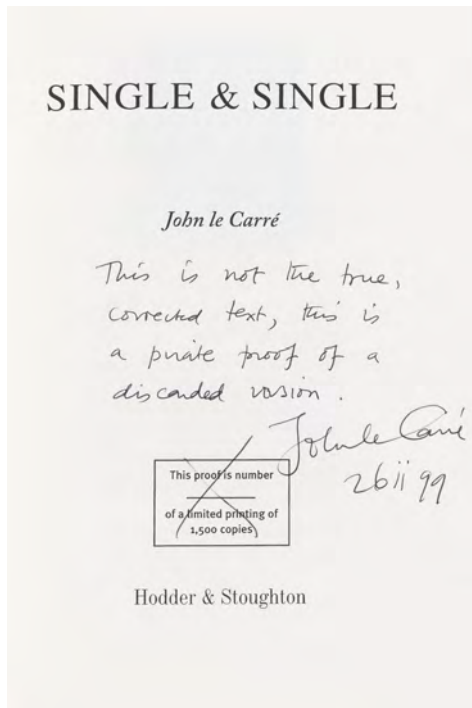 SINGLE & SINGLE
John le Carré
This is not the true,
corrected text, this is
a pirate proof of a
discarded version.
John le Carré
26 ii 99
This proof is number
of a limited printing of
1,500 copies
Hodder & Stoughton